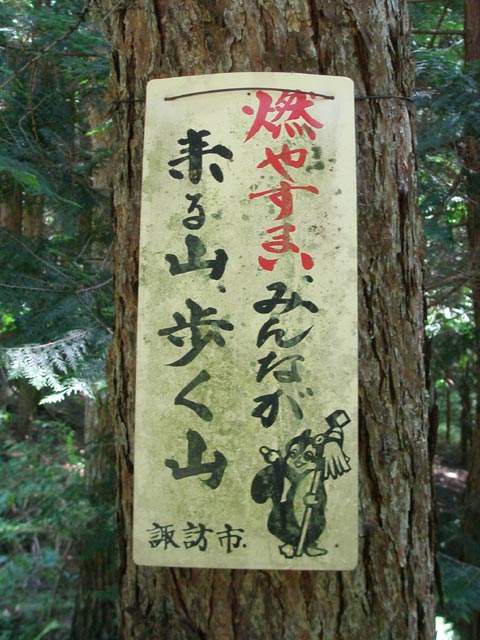 燃やすまい、みんなが
来る山、歩く山
諏訪市.